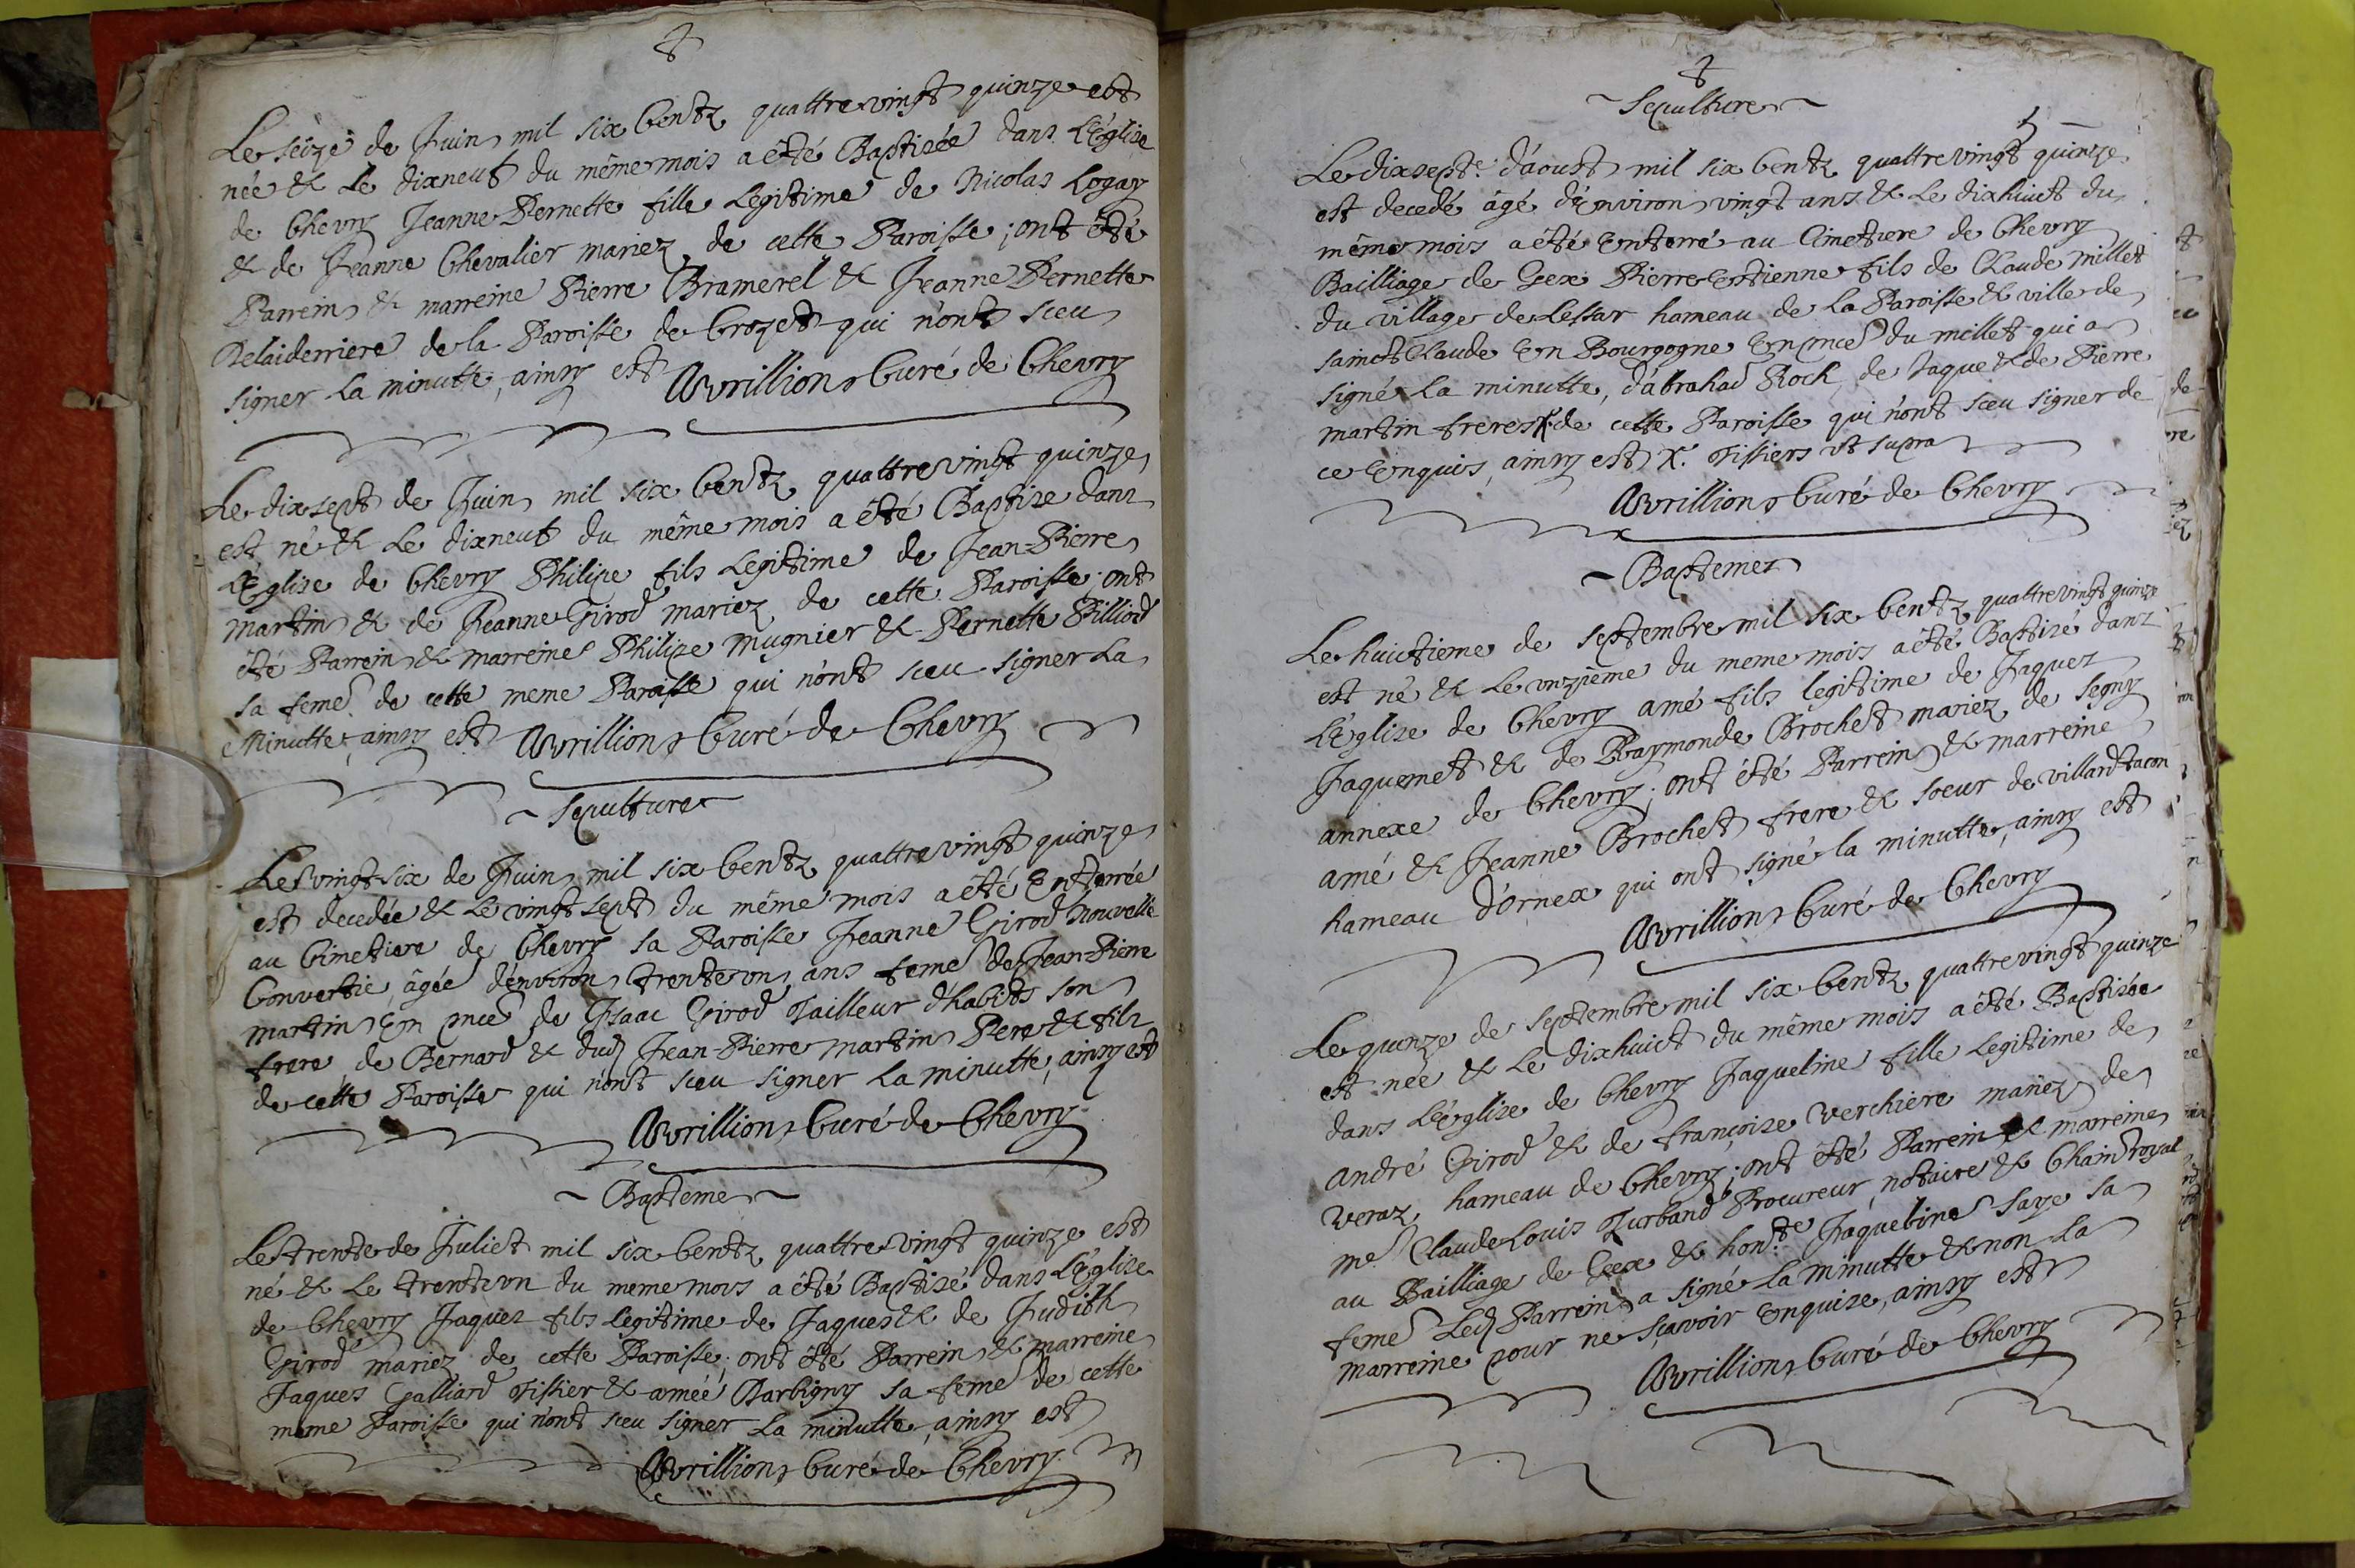 Le seize de Juin mil six Centz quattre vingt quinze est
née & Le dixneuf du même mois a été Baptisée dans L'Église
de Chevry Jeanne Pernette fille Legitime de Nicolas Logay
& de Jeanne Chevalier mariez de cette Paroisse ; ont été
Parrein & marreine Pierre Bramerel & Jeanne Pernette
Delaiderriere de la Paroisse de Crozet qui n'ont sceu
signer La minutte, ainsy est Avrillion Curé de Chevry
Le dixsept de Juin mil six Centz quattre vingt quinze
est né & Le dixneuf du même mois a été Baptize dans
L'Église de Chevry Philipe fils Legitime de Jean-Pierre
martin & de Jeanne Girod mariez de cette Paroisse ; ont
été Parrein & marreine Philipe mugnier & Pernette Pilliod
sa feme de cette meme Paroisse qui n'ont sceu signer La
Minutte, ainsy est Avrillion Curé de Chevry
~ Sepulture
Le vingt-six de Juin mil six Centz quattre vingt quinze
est decedée & Le vingt sept du même mois a été Enterrée
au Cimetiere de Chevry sa Paroisse Jeanne Girod Nouvelle
Convertie, âgée d'environ trente un ans feme de Jean-Pierre
martin En pnce de Isaac Girod Tailleur d'habits son
frere, de Bernard & dud Jean-Pierre martin Pere & fils
de cette Paroisse qui n'ont sceu signer La minutte, ainsy est
Avrillion Curé de Chevry
~ Bapteme ~
Le trente de Juliet mil six Centz quattre vingt quinze est
né & Le trente un du meme mois a été Baptizé dans L'Église
de Chevry Jaques fils legitime de Jaques & de Judith
Girod mariez de cette Paroisse ; ont été Parrein & marreine
Jaques Galliard Tissier & amée Barbigny sa feme de cette
meme Paroisse qui n'ont sceu signer La minutte, ainsy est
Avrillion Curé de Chevry
~ Sepulture ~
5
Le dixsept.e d'aoust mil six Centz quattre vingt quinze
est decedé âgé d'Environ vingt ans & Le dixhuict du
même mois a été Enterré au Cimetiere de Chevry
Bailliage de Gex Pierre Estienne fils de Claude millet
du village de Lessar hameau de La Paroisse & ville de
sainct Claude En Bourgogne En pnce du millet qui a
signé La minutte, d'abrahad Roch, de Jaque & de Pierre
martin freres X de cette Paroisse qui n'ont sceu signer de
ce Enquis, ainsy est X. Tissiers ut supra
Avrillion Curé de Chevry
~ Baptemes
Le huictieme de septembre mil six Centz quattre vingt quinze
est né & Le unzième du meme mois a été Baptizé dans
L'Église de Chevry amé fils legitime de Jaques
Jaquemet & de Raymonde Brochet mariez de Segny
annexe de Chevry ; ont été Parrein & marreine
amé & Jeanne Brochet frere & soeur de villard tacon
hameau d'ornex qui ont signé la minutte, ainsy est
Avrillion Curé de Chevry
Le quinze de septembre mil six Centz quattre vingt quinze
est née & Le dixhuict du même mois a été Baptisée
dans L'église de Chevry Jaqueline fille Legitime de
andré Girod & de françoise verchiere mariez de
veraz, hameau de Chevry ; ont été Parrein & marreine
me Claude Louis Turband Procureur, notaire & Chain royal
au Bailliage de Gex & hon.te Jaqueline Saye sa
feme Led Parrein a signé La minutte & non La
marreine pour ne sçavoir Enquize, ainsy est
Avrillion Curé de Chevry